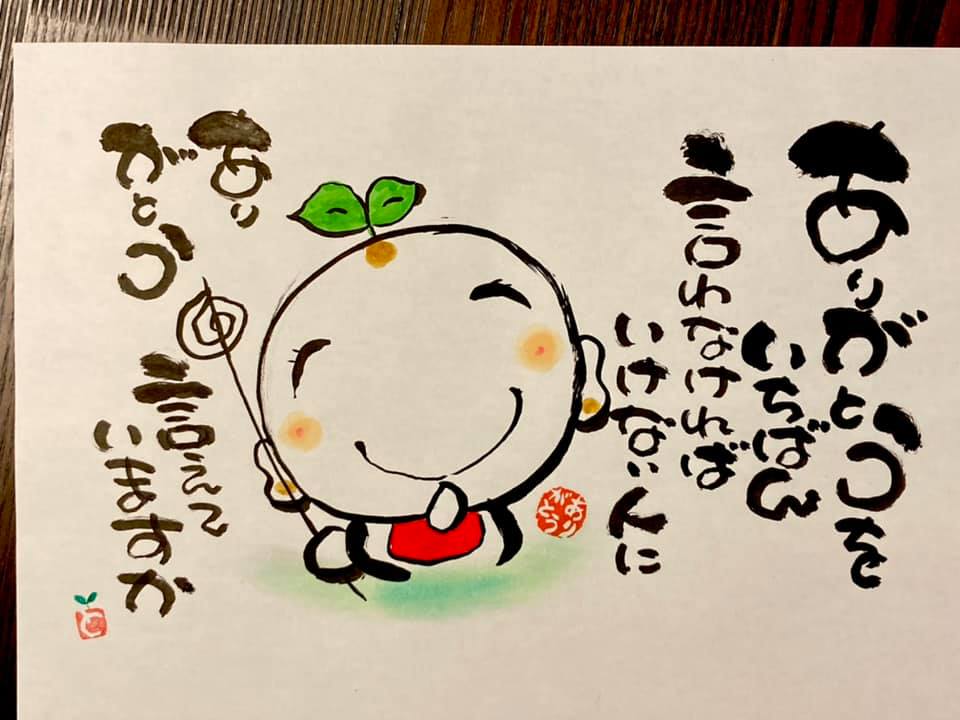 ありがとうを
いちばん
言わなければ
いけない人に
あり
がとう
言えて
いますか
ありがとう